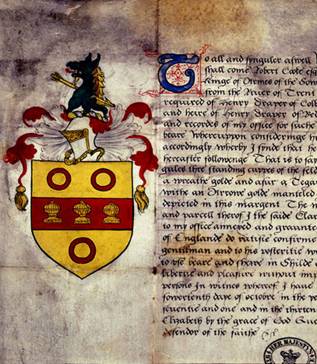 To all and singuler aswell
shall come Robert Cooke
Kinge of Armes of the Sou
from the River of Trent
required of Henry Draper of Col
and heire of Henry Draper of
and recordes of my office for suche
beare Whereuppon consideringe h
accordingly wherby I finde that he
hereafter followenge That is to say
gules three standing cuppes of the fel
a wreathe golde and
with an golde mantelled
depicted in this margent The
and parcell therof I the saide Clare
to my office annexed and graunte
of Englande do ratifie confirme
gentilman and to his posteritie
to vse beare and shewe in Shilde
libertie and pleasure without im
persons In witnes wherof I have
fowertenth daye of octobre in the ye
seuentie and one and in the thirten
Elizabeth by the grace of God Que
defendor of the faithe
HER MAJESTY